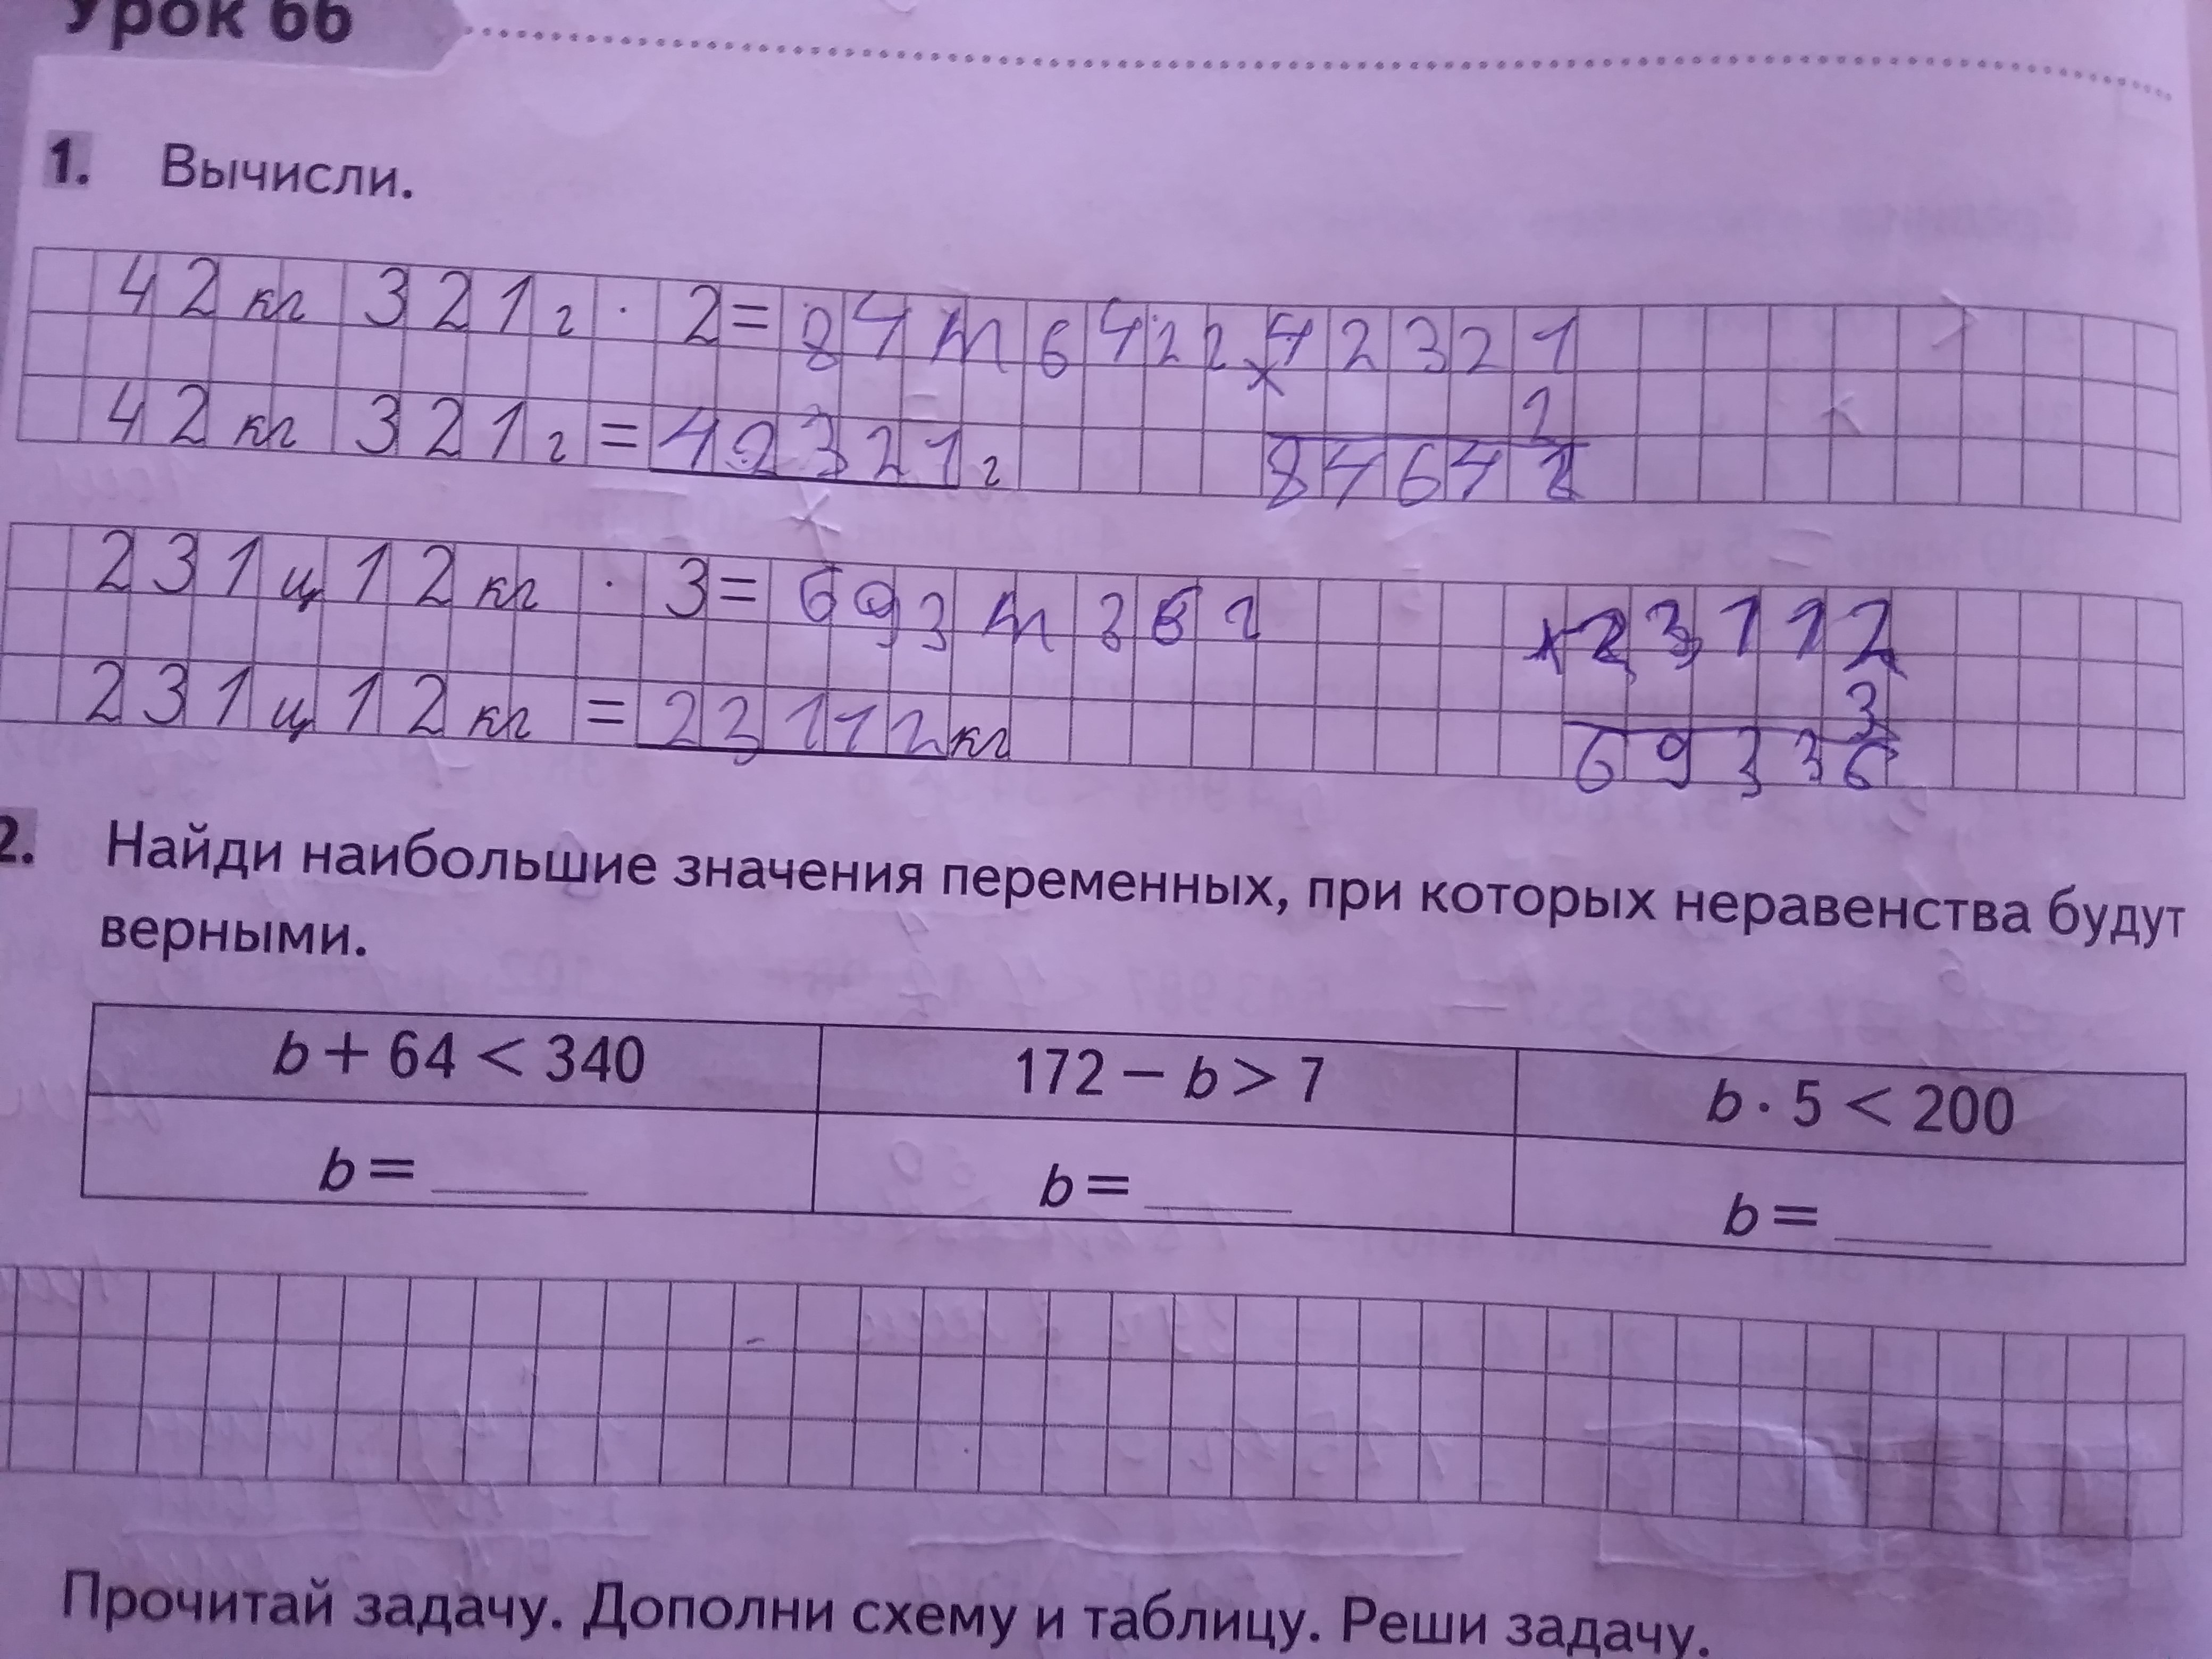 Урок 66
1. Вычисли.
42 кг 321 г · 2 = 84 т 642 г × 42321
2
42 кг 321 г = 42321 г 84642
231 ц 12 кг · 3 = 693 т 36 г × 23112
3
231 ц 12 кг = 23112 кг 69336
2. Найди наибольшие значения переменных, при которых неравенства будут
верными.
b + 64 < 340 172 − b > 7 b · 5 < 200
b = ____ b = ____ b = ____
Прочитай задачу. Дополни схему и таблицу. Реши задачу.